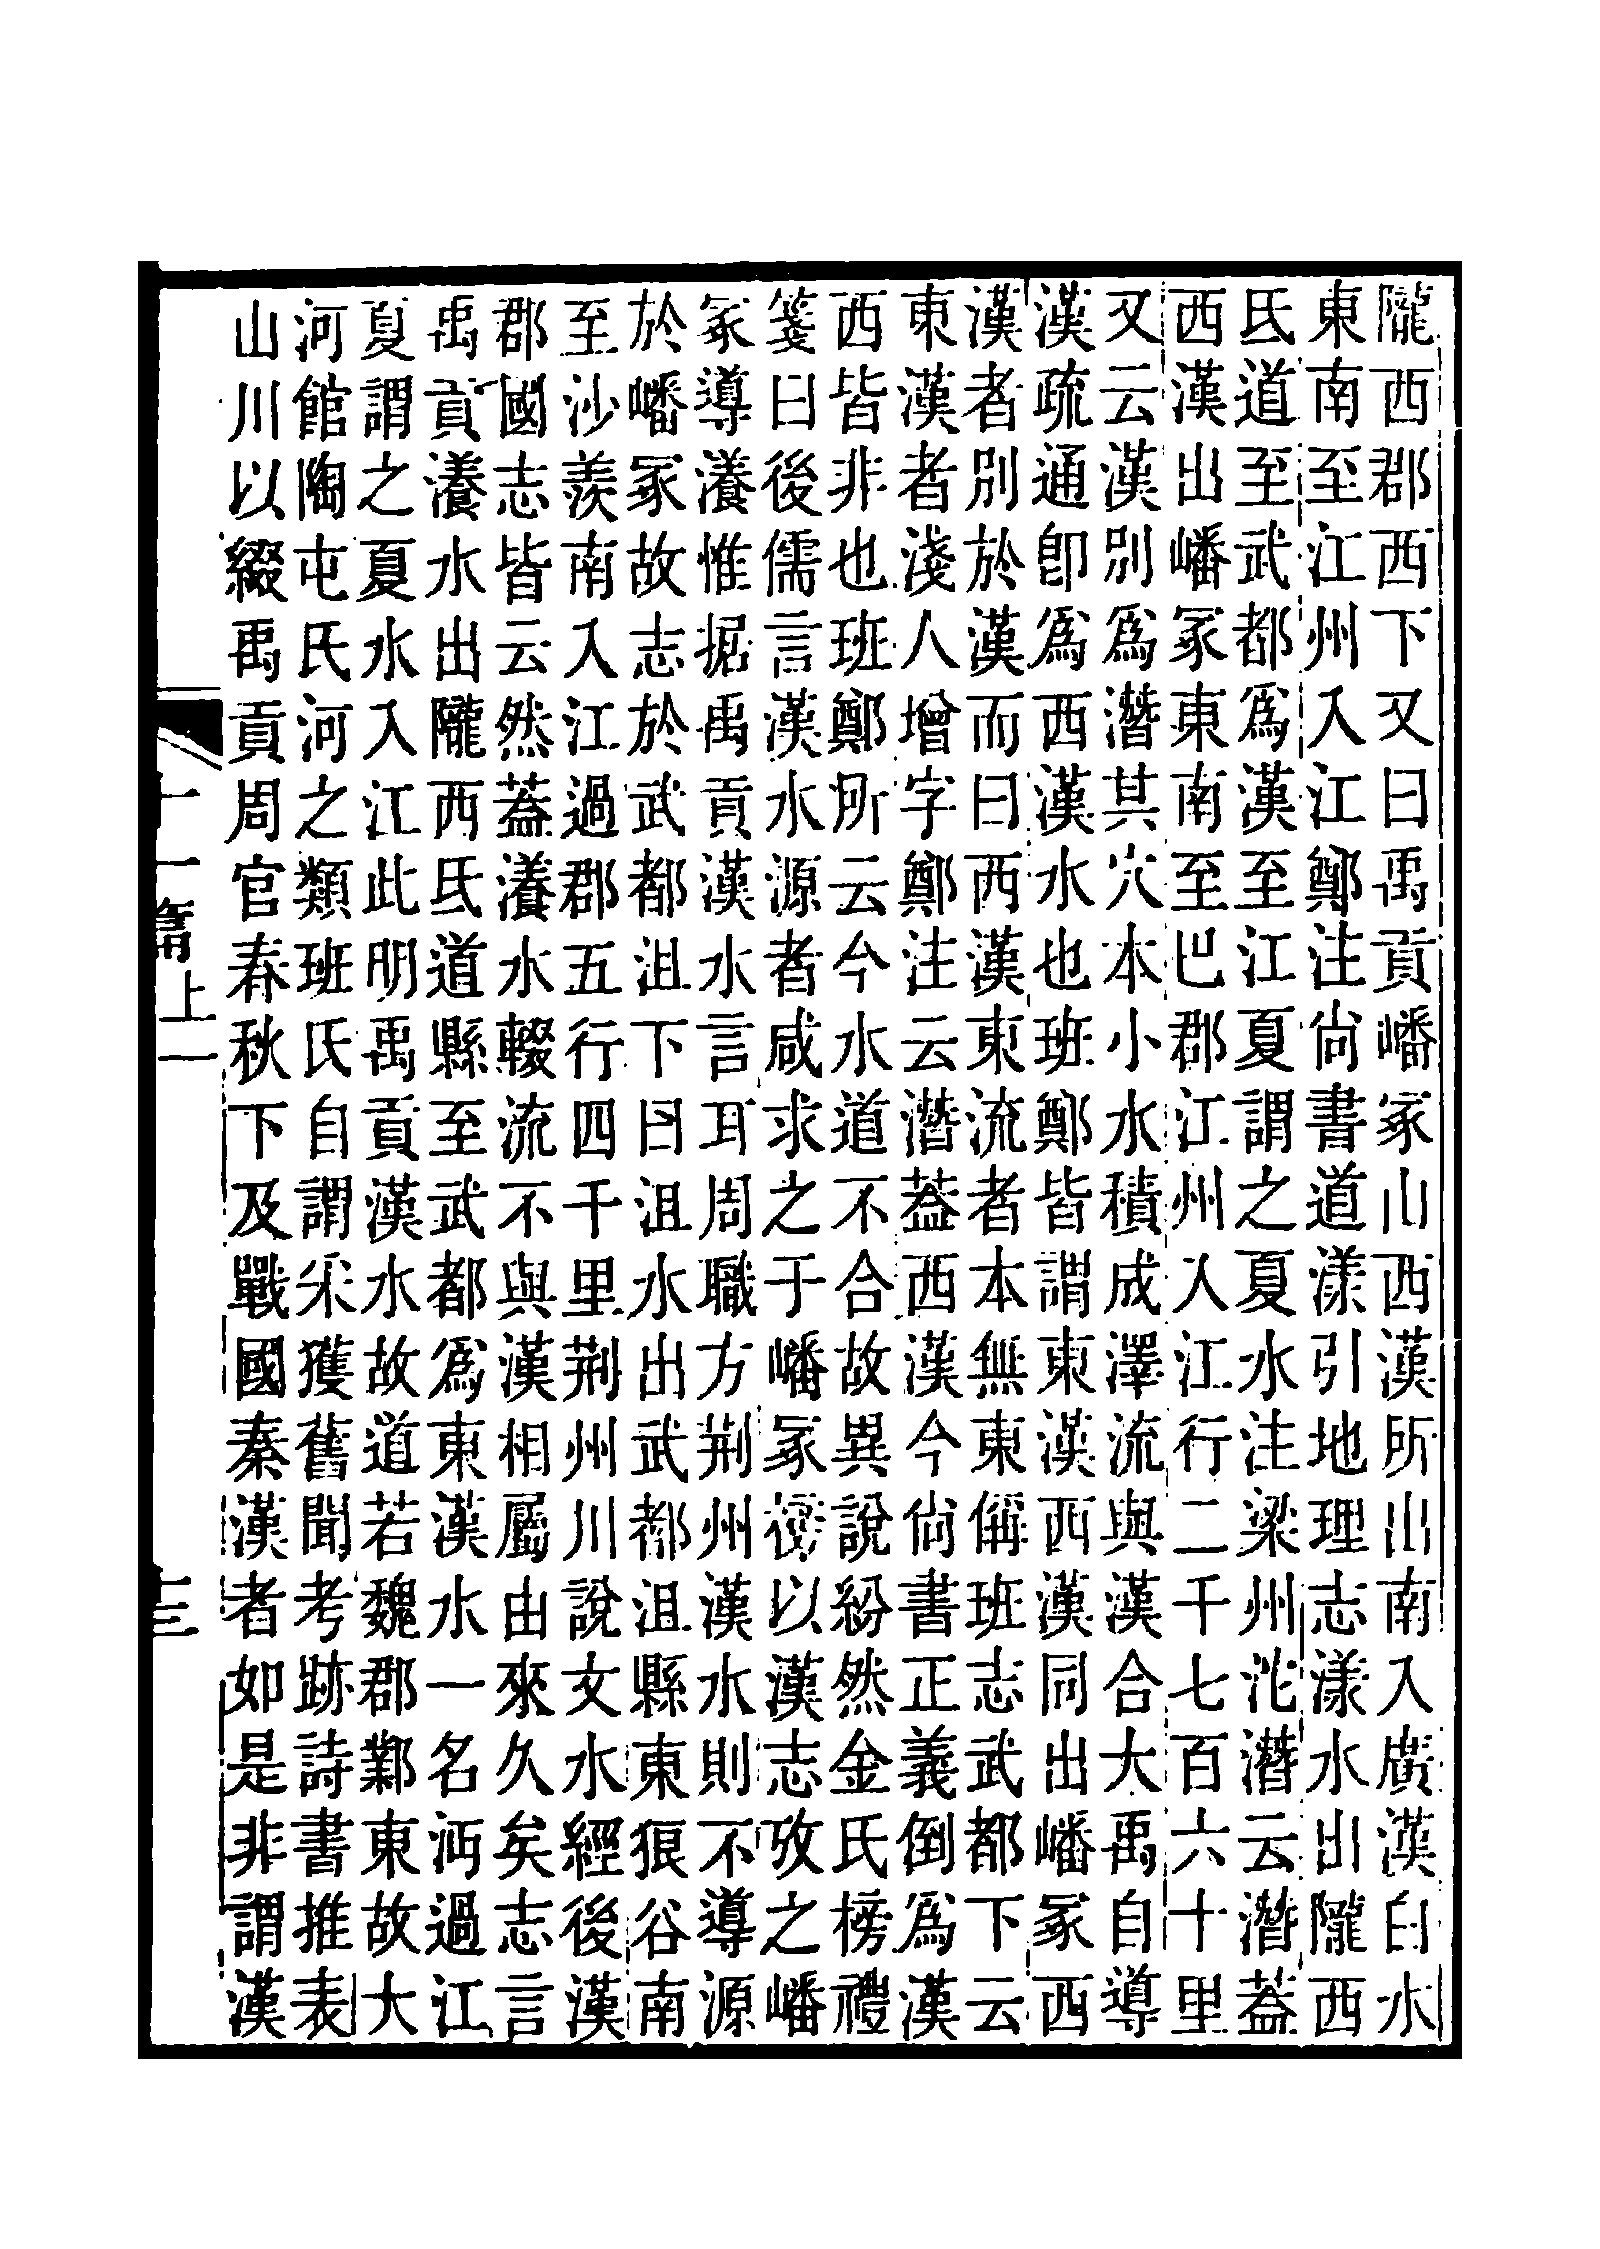 隴西郡西下又曰禹貢嶓冢山西漢所出南入廣漢白水
東南至江州入江鄭注尙書道漾引地理志漾水出隴西
氐道至武都爲漢至江夏謂之夏水注梁州沱潛云潛蓋
西漢出嶓冢東南至巴郡江州入江行二千七百六十里
又云漢別爲潛其穴本小水積成澤流與漢合大禹自導
漢疏通卽爲西漢水也班鄭皆謂東漢西漢同出嶓冢西
漢者別於漢而曰西漢東流者本無東偁班志武都下云
東漢者淺人增字鄭注云潛蓋西漢今尙書正義倒爲漢
西皆非也班鄭所云今水道不合故異說紛然金氏榜禮
箋曰後儒言漢水源者咸求之于嶓冢榜以漢志攷之嶓
冢導瀁惟据禹貢漢水言耳周職方荆州漢水則不導源
於嶓冢故志於武都沮下曰沮水出武都沮縣東狼谷南
至沙羨南入江過郡五行四千里荆州川說文水經後漢
郡國志皆云然蓋瀁水輟流不與漢相屬由來久矣志言
禹貢瀁水出隴西氐道縣至武都爲東漢水一名沔過江
夏謂之夏水入江此明禹貢漢水故道若魏郡鄴東故大
河館陶屯氏河之類班氏自謂采獲舊聞考跡詩書推表
山川以綴禹貢周官春秋下及戰國秦漢者如是非謂漢
十一篇上一
十三